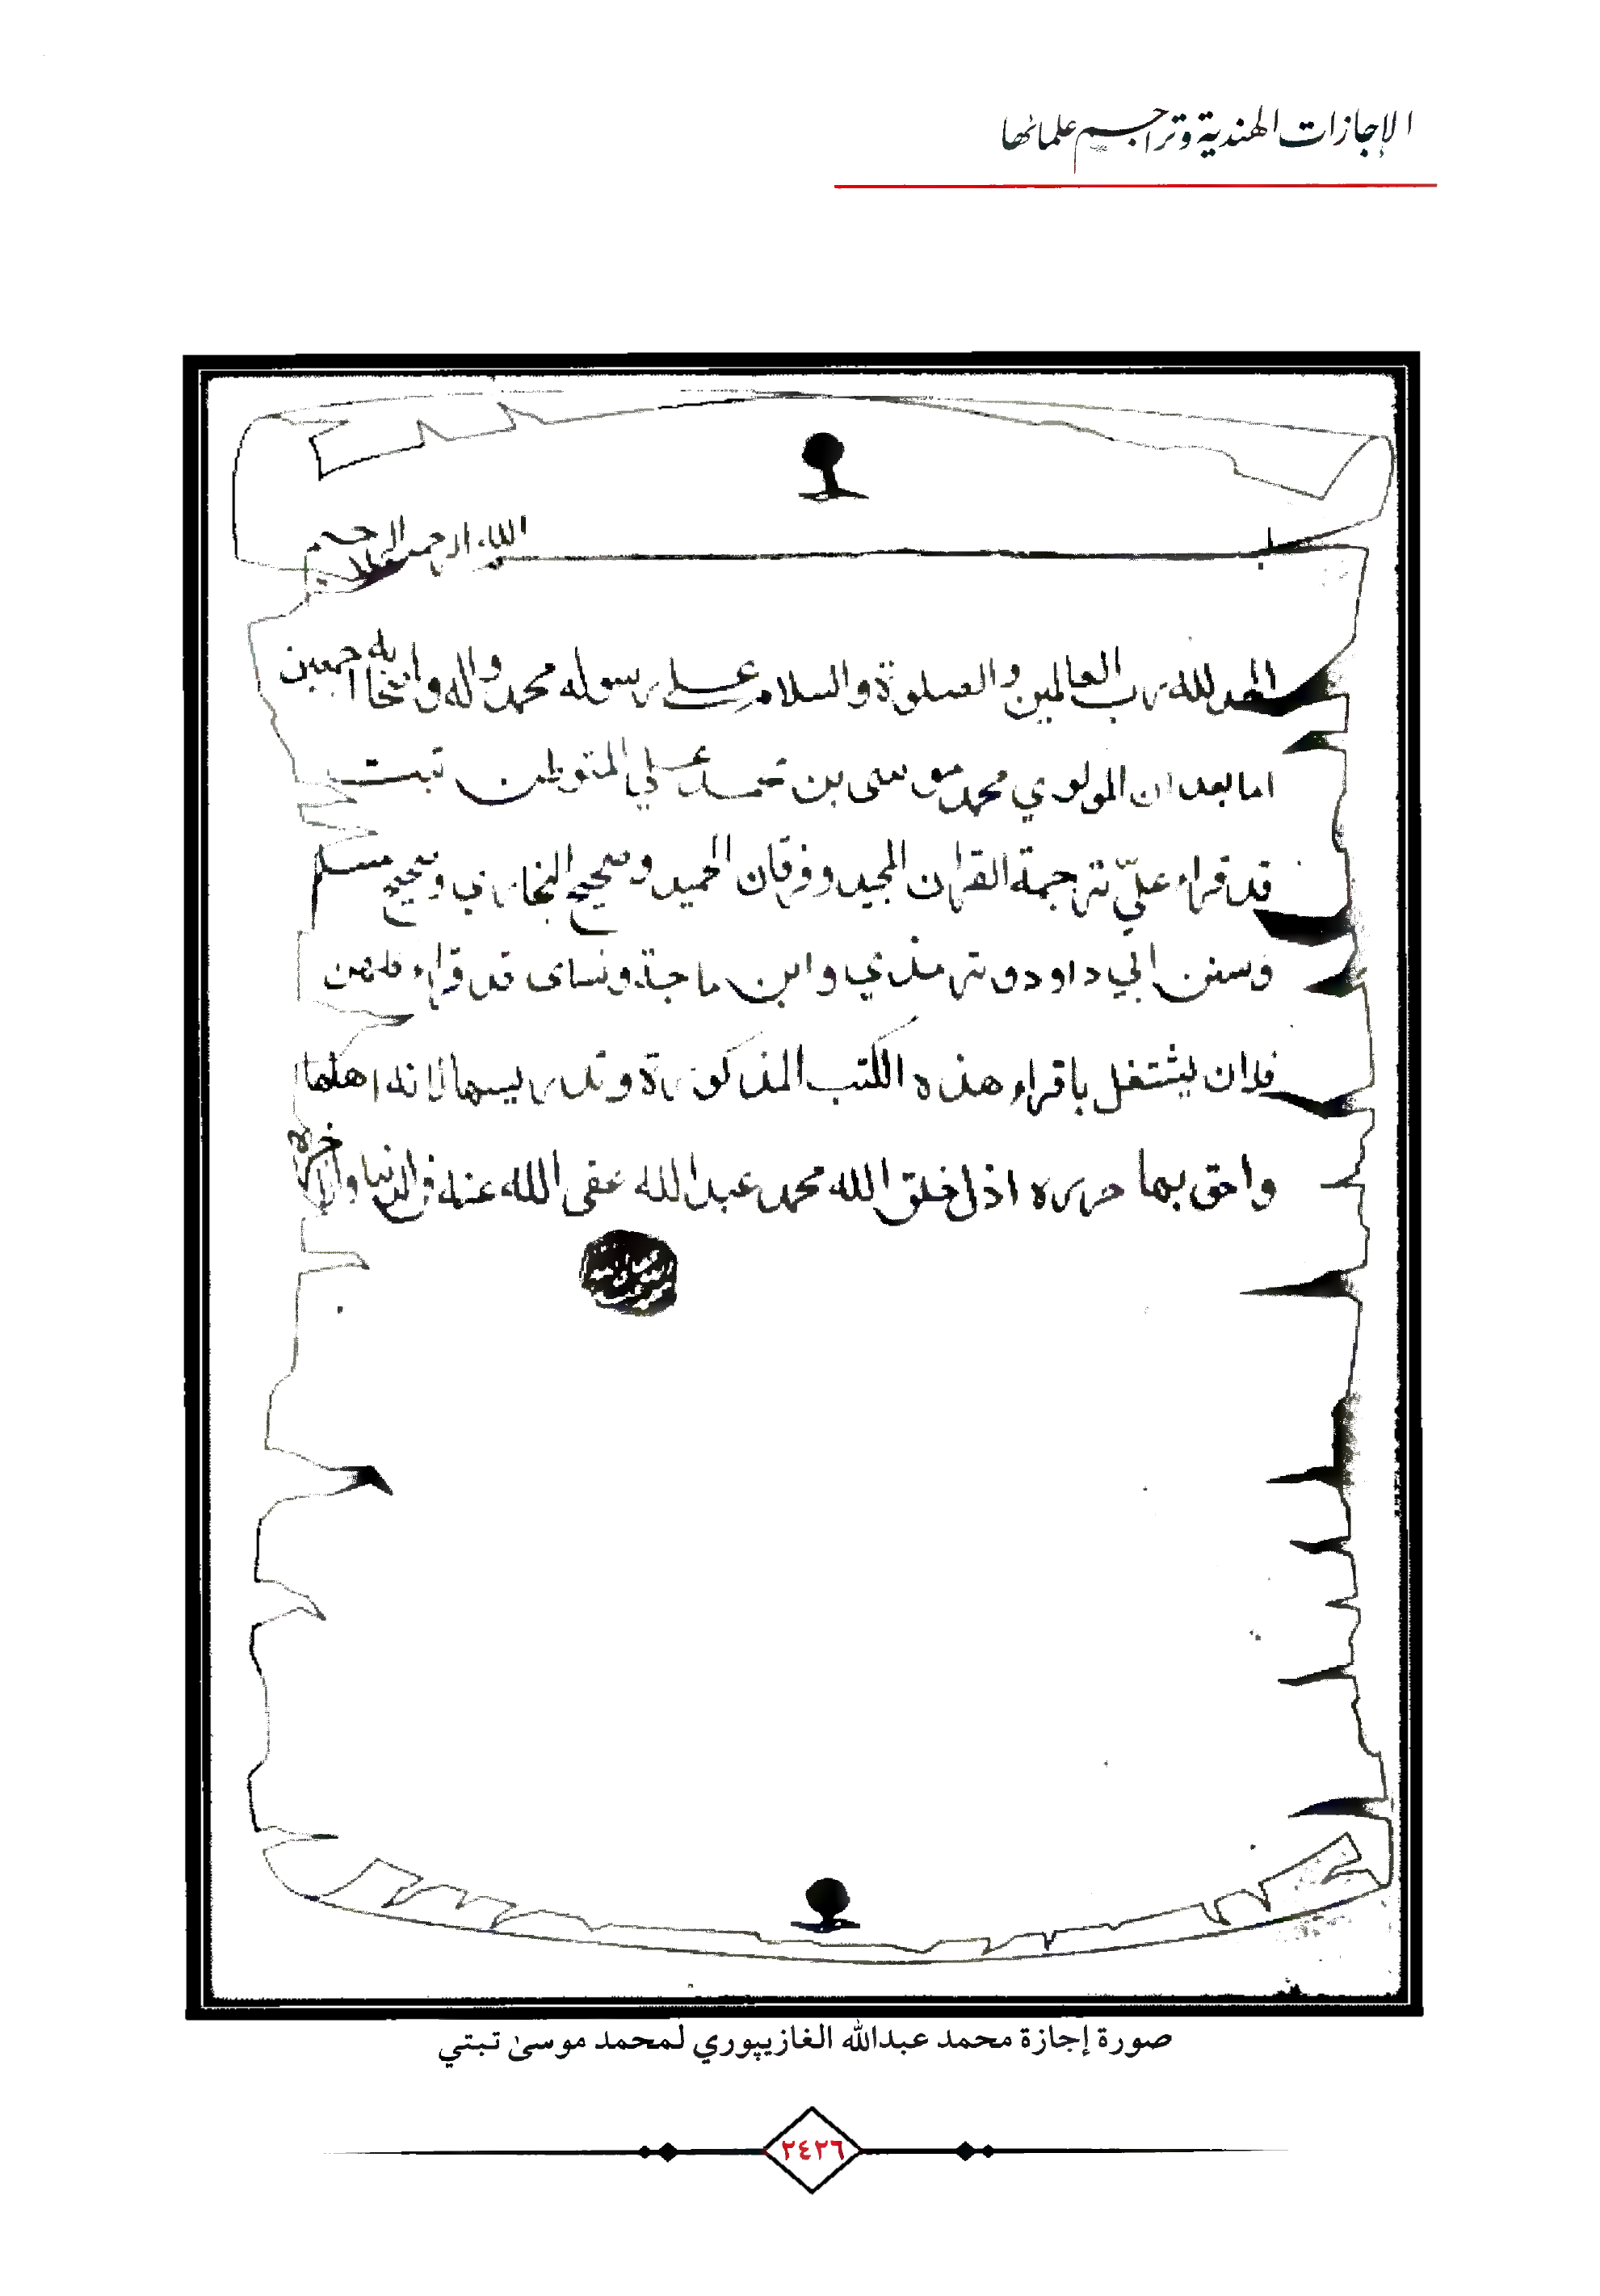 الإجازات الهندية وتراجم علمائها
بسم الله الرحمن الرحيم
الحمد لله رب العالمين والصلوة والسلام على رسوله محمد واله واصحابه اجمعين
اما بعد ان المولوي محمد موسى بن محمد علي المتوطن تبت
قد قراء عليّ ترجمة القران المجيد وفرقان الحميد وصحيح البخاري وصحيح مسلم
وسنن ابي داود وترمذي وابن ماجة ونساى قد قراء
فلان يشتغل باقراء هذه الكتب المذكورة وتدريسها لانه اهلها
واحق بها حرره اذل خلق الله محمد عبد الله عفى الله عنه في الدنيا والاخره
صورة إجازة محمد عبدالله الغازيپوري لمحمد موسىٰ تبتي
٢٤٢٦